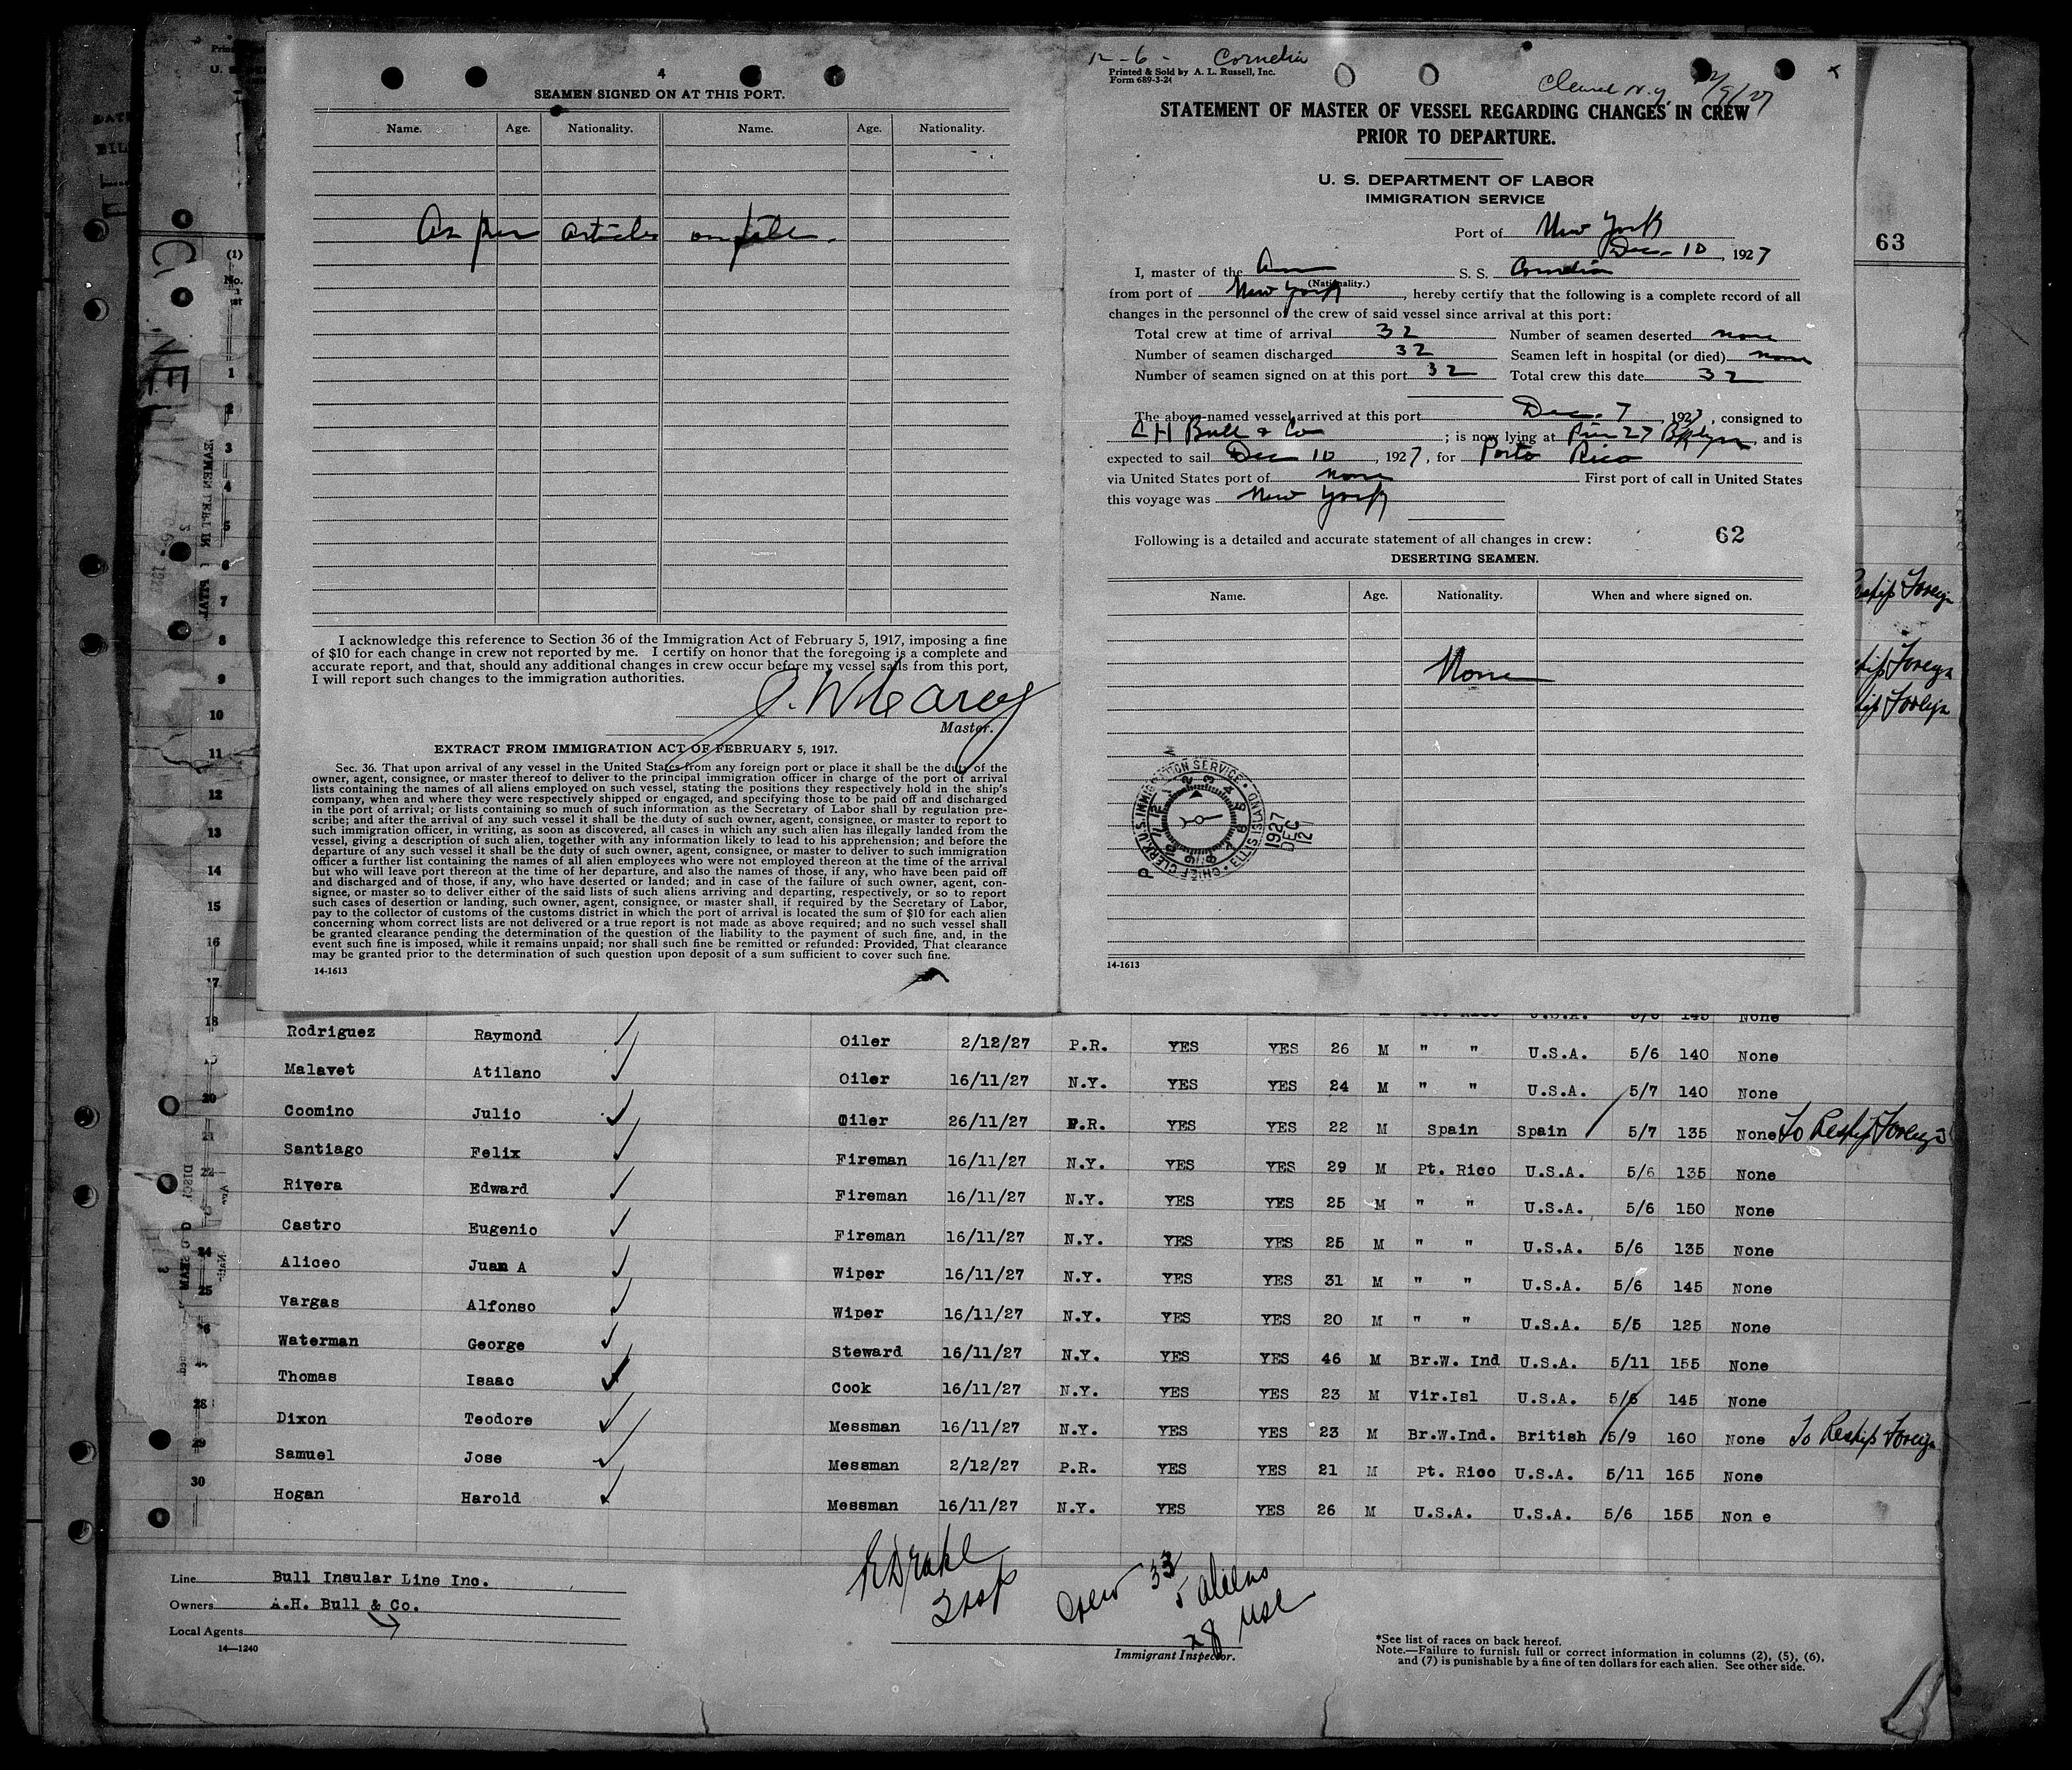 4
SEAMEN SIGNED ON AT THIS PORT.
Name. Age. Nationality. Name. Age. Nationality.
As per articles on file.
I acknowledge this reference to Section 36 of the Immigration Act of February 5, 1917, imposing a fine
of $10 for each change in crew not reported by me. I certify on honor that the foregoing is a complete and
accurate report, and that, should any additional changes in crew occur before my vessel sails from this port,
I will report such changes to the immigration authorities.
Master.
EXTRACT FROM IMMIGRATION ACT OF FEBRUARY 5, 1917.
Sec. 36. That upon arrival of any vessel in the United States from any foreign port or place it shall be the duty of the
owner, agent, consignee, or master thereof to deliver to the principal immigration officer in charge of the port of arrival
lists containing the names of all aliens employed on such vessel, stating the positions they respectively hold in the ship's
company, when and where they were respectively shipped or engaged, and specifying those to be paid off and discharged
in the port of arrival; or lists containing so much of such information as the Secretary of Labor shall by regulation pre-
scribe; and after the arrival of any such vessel it shall be the duty of such owner, agent, consignee, or master to report to
such immigration officer, in writing, as soon as discovered, all cases in which any such alien has illegally landed from the
vessel, giving a description of such alien, together with any information likely to lead to his apprehension; and before the
departure of any such vessel it shall be the duty of such owner, agent, consignee, or master to deliver to such immigration
officer a further list containing the names of all alien employees who were not employed thereon at the time of the arrival
but who will leave port thereon at the time of her departure, and also the names of those, if any, who have been paid off
and discharged and of those, if any, who have deserted or landed; and in case of the failure of such owner, agent, con-
signee, or master so to deliver either of the said lists of such aliens arriving and departing, respectively, or so to report
such cases of desertion or landing, such owner, agent, consignee, or master shall, if required by the Secretary of Labor,
pay to the collector of customs of the customs district in which the port of arrival is located the sum of $10 for each alien
concerning whom correct lists are not delivered or a true report is not made as above required; and no such vessel shall
be granted clearance pending the determination of the question of the liability to the payment of such fine, and, in the
event such fine is imposed, while it remains unpaid; nor shall such fine be remitted or refunded: Provided, That clearance
may be granted prior to the determination of such question upon deposit of a sum sufficient to cover such fine.
14-1613
12-6- Cornelia
Printed & Sold by A. L. Russell, Inc.
Form 689-3-24
Cleared N.Y. 12/9/27
STATEMENT OF MASTER OF VESSEL REGARDING CHANGES IN CREW
PRIOR TO DEPARTURE.
U. S. DEPARTMENT OF LABOR
IMMIGRATION SERVICE
Port of New York
Dec. 10, 1927
I, master of the Am S. S. Cornelia
(Nationality.)
from port of New York, hereby certify that the following is a complete record of all
changes in the personnel of the crew of said vessel since arrival at this port:
Total crew at time of arrival 32 Number of seamen deserted none
Number of seamen discharged 32 Seamen left in hospital (or died) none
Number of seamen signed on at this port 32 Total crew this date 32
The above-named vessel arrived at this port Dec. 7, 1927, consigned to
Bull & Co; is now lying at Pier 27 Bklyn, and is
expected to sail Dec 10, 1927, for Porto Rico
via United States port of none First port of call in United States
this voyage was New York
Following is a detailed and accurate statement of all changes in crew: 62
DESERTING SEAMEN.
Name. Age. Nationality. When and where signed on.
None
CHIEF CLERK U.S. IMMIGRATION SERVICE ELLIS ISLAND
1927 DEC 12
14-1613
63
(1)
No.
1
2
3
4
5
6
7
8
9
10
11
12
13
14
15
16
17
Reship Foreign
Foreign
Foreign
18 Rodriguez Raymond Oiler 2/12/27 P.R. YES YES 26 M " " U.S.A. 5/6 140 None
Malavet Atilano Oiler 16/11/27 N.Y. YES YES 24 M " " U.S.A. 5/7 140 None
20 Coomino Julio Oiler 26/11/27 P.R. YES YES 22 M Spain Spain 5/7 135 None To Reship Foreign
21 Santiago Felix Fireman 16/11/27 N.Y. YES YES 29 M Pt. Rico U.S.A. 5/6 135 None
22 Rivera Edward Fireman 16/11/27 N.Y. YES YES 25 M " " U.S.A. 5/6 150 None
Castro Eugenio Fireman 16/11/27 N.Y. YES YES 25 M " " U.S.A. 5/6 135 None
24 Aliceo Juan A Wiper 16/11/27 N.Y. YES YES 31 M " " U.S.A. 5/6 145 None
25 Vargas Alfonso Wiper 16/11/27 N.Y. YES YES 20 M " " U.S.A. 5/5 125 None
26 Waterman George Steward 16/11/27 N.Y. YES YES 46 M Br.W. Ind U.S.A. 5/11 155 None
Thomas Isaac Cook 16/11/27 N.Y. YES YES 23 M Vir.Isl U.S.A. 5/6 145 None
28 Dixon Teodore Messman 16/11/27 N.Y. YES YES 23 M Br.W.Ind. British 5/9 160 None To Reship Foreign
29 Samuel Jose Messman 2/12/27 P.R. YES YES 21 M Pt. Rico U.S.A. 5/11 165 None
30 Hogan Harold Messman 16/11/27 N.Y. YES YES 26 M U.S.A. U.S.A. 5/6 155 Non e
Line Bull Insular Line Inc.
Owners A.H. Bull & Co.
Local Agents
14—1240
Drake
Insp
Crew 33
5 aliens
28 USC
Immigrant Inspector.
*See list of races on back hereof.
Note.—Failure to furnish full or correct information in columns (2), (5), (6),
and (7) is punishable by a fine of ten dollars for each alien. See other side.